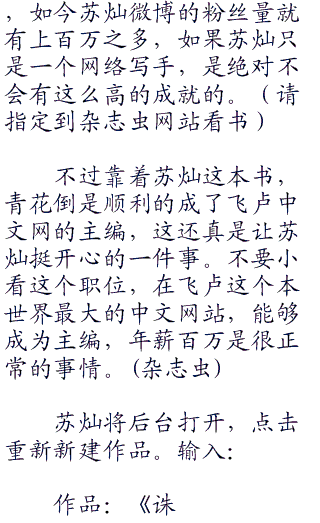 ，如今苏灿微博的粉丝量就
有上百万之多，如果苏灿只
是一个网络写手，是绝对不
会有这么高的成就的。（请
指定到杂志虫网站看书）
不过靠着苏灿这本书，
青花倒是顺利的成了飞卢中
文网的主编，这还真是让苏
灿挺开心的一件事。不要小
看这个职位，在飞卢这个本
世界最大的中文网站，能够
成为主编，年薪百万是很正
常的事情。(杂志虫)
苏灿将后台打开，点击
重新新建作品。输入：
作品：《诛